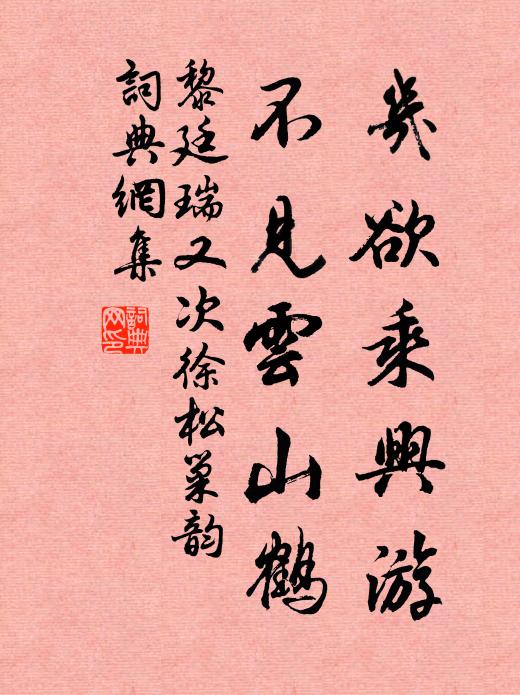 幾欲乘興游
不見雲山鶴
黎廷瑞又次徐松巢韵
詞典網集
詞典網印